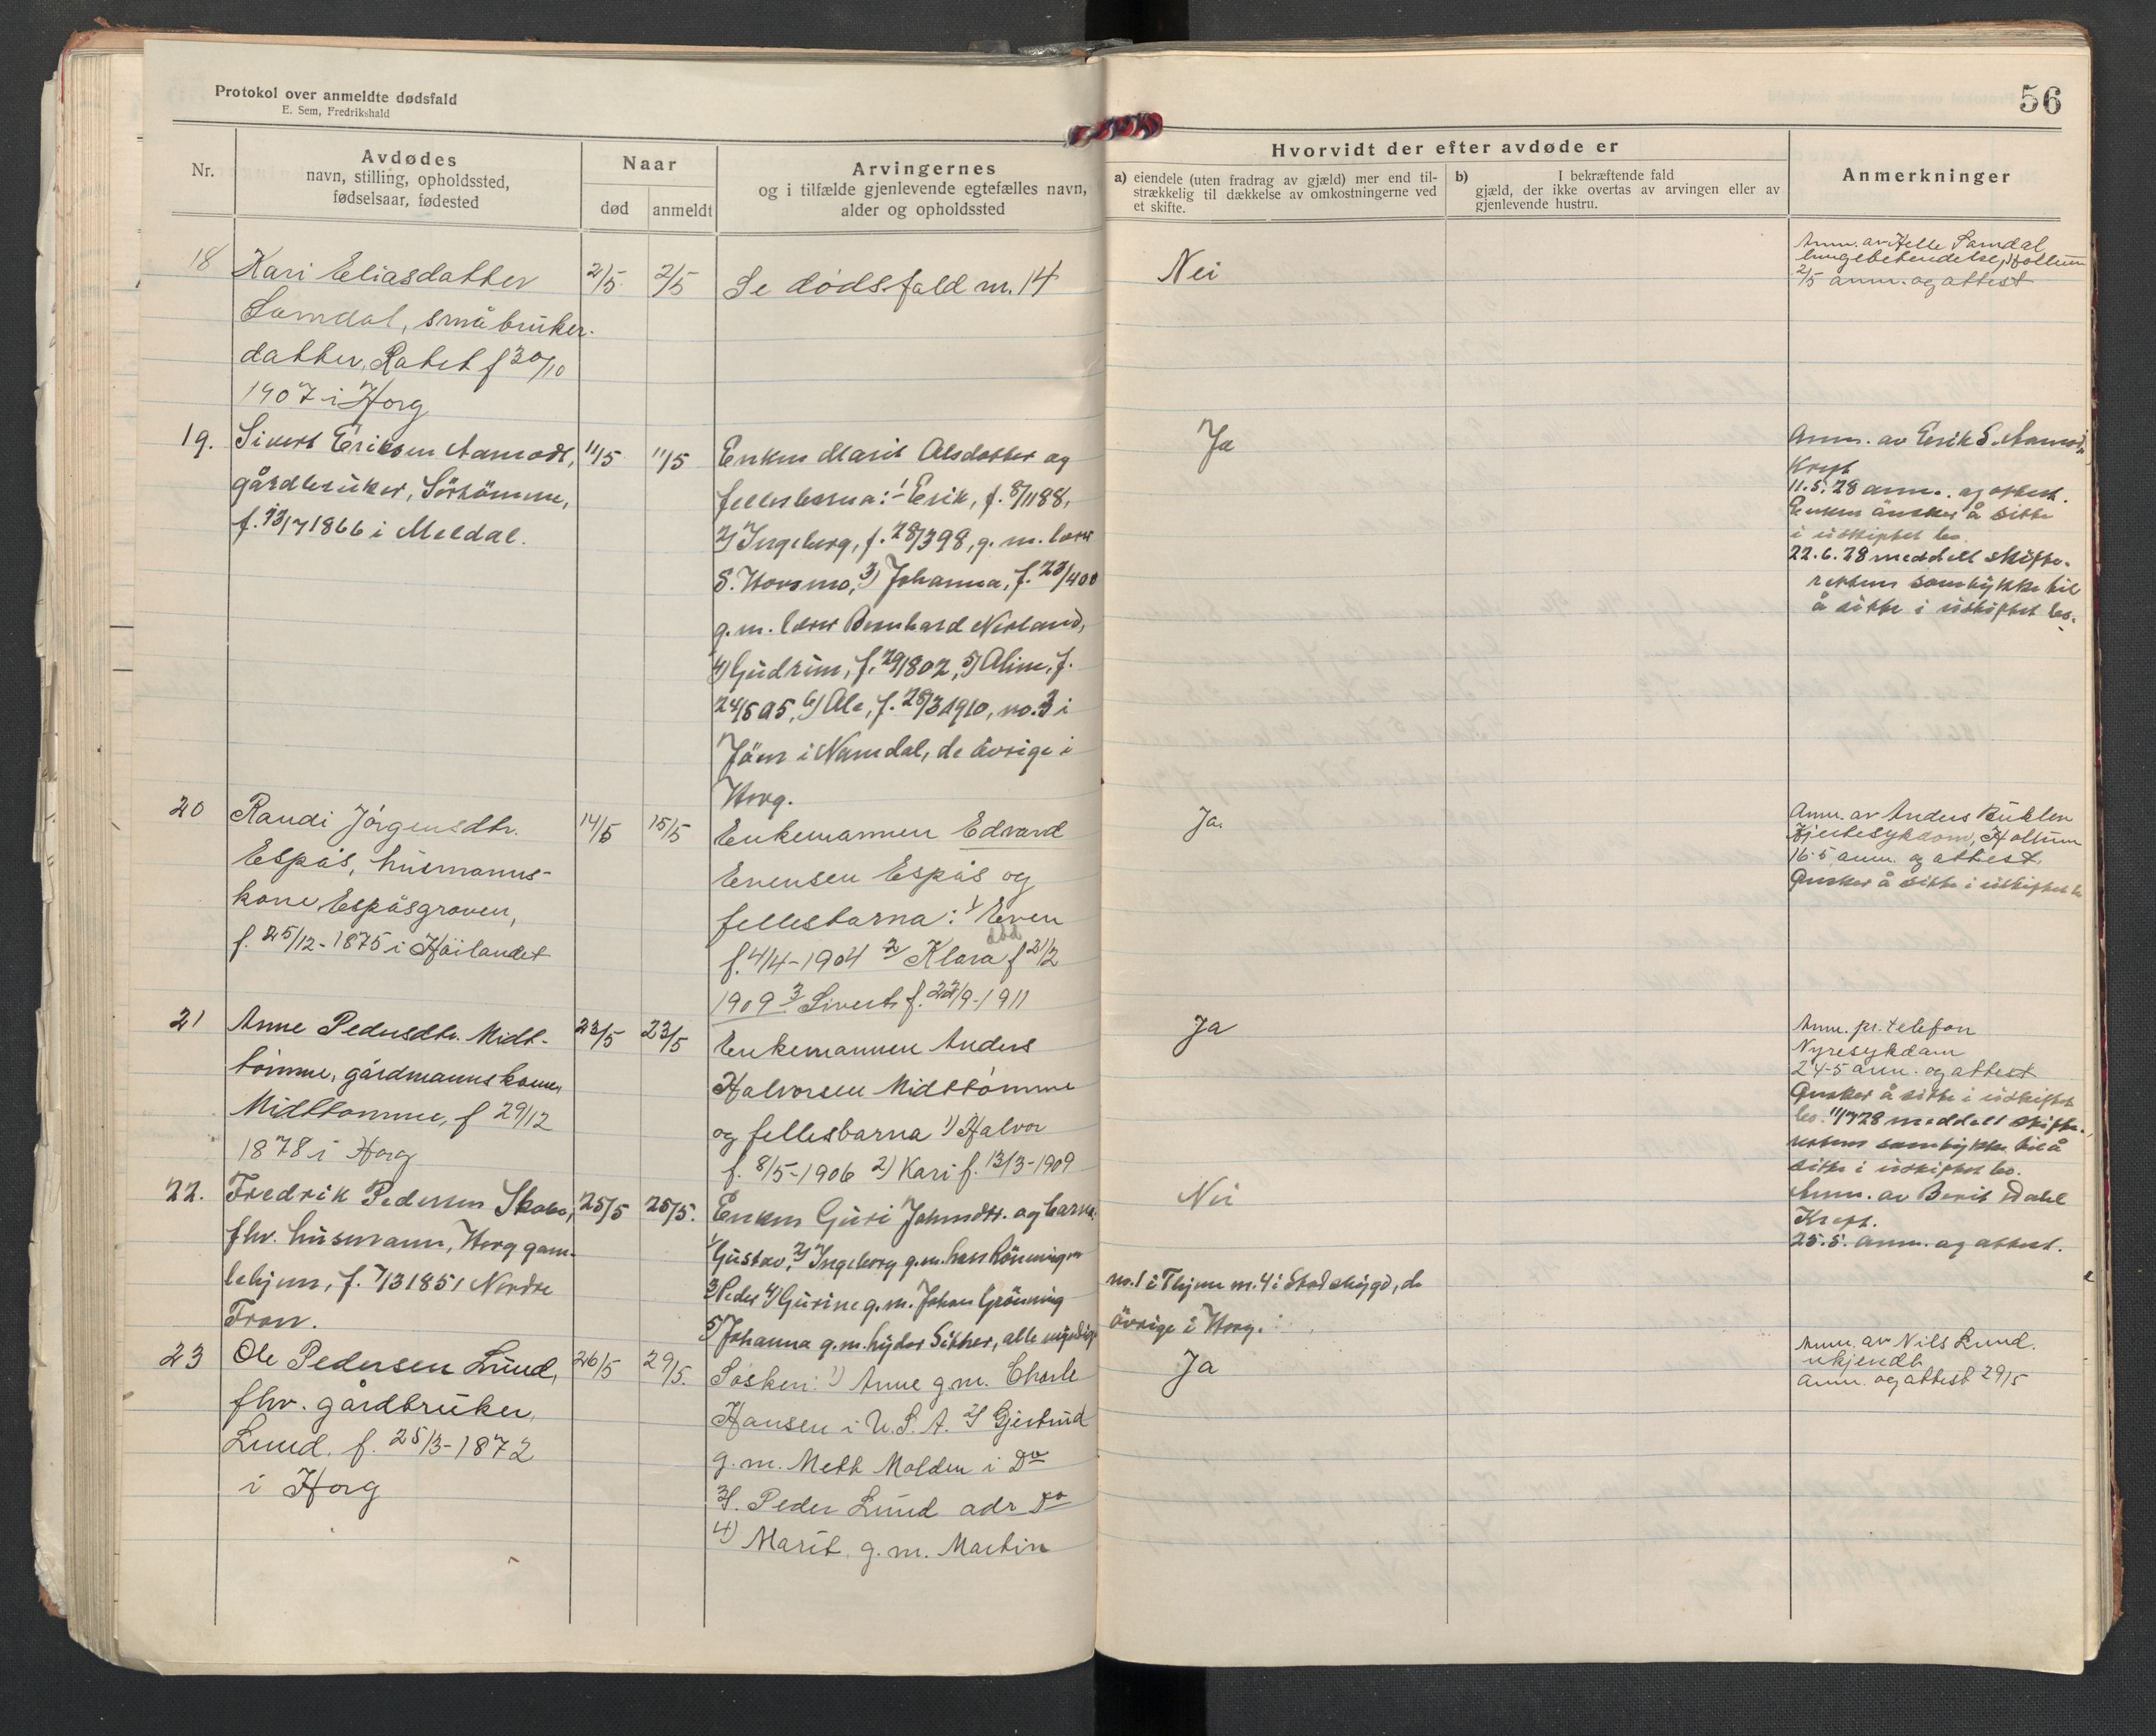 Protokol over anmeldte dødsfald
E. Sem, Fredrikshald
56
Nr.
Avdødes
navn, stilling, opholdssted,
fødselsaar, fødested
Naar
død
anmeldt
Arvingernes
og i tilfælde gjenlevende egtefælles navn,
alder og opholdssted
Hvorvidt der efter avdøde er
a) eiendele (uten fradrag av gjæld) mer end til-
strækkelig til dækkelse av omkostningerne ved
et skifte.
b) I bekræftende fald
gjæld, der ikke overtas av arvingen eller av
gjenlevende hustru.
Anmerkninger
18 Kari Eliasdatter
Samdal, småbruker-
datter, f 30/10
1907 i Horg
2/5 2/5
Se dødsfald nr. 14
Nei
Anm. av Helle Samdal
lungebetendelse,
2/5 anm. og attest
19. Sivert Eriksen Aamodt,
gårdbruker, Sörtömme,
f. 13/7 1866 i Meldal.
11/5 11/5
Enken Marit Olsdatter og
fellesbarna: 1 Erik, f. 8/1188,
2) Ingeborg, f. 28/398, g. m. lærer
S. Horsmo, 3) Johanna, f. 23/400
g. m. lærer Bernhard Nerland,
4) Gudrun, f. 29/802, 5) Oline, f.
24/505, 6) Ole, f. 28/31910, no. 3 i
i Namdal, de övrige i
Horg.
Ja
Anm. av Erik S. Aamodt,
Kreft
11.5.28 anm. og attest.
Enken önsker å sitte
i uskiftet bo.
22.6.28 meddelt skifte-
rettens samtykke til
å sitte i uskiftet bo.
20 Randi Jörgensdtr.
Espås, husmanns-
kone Espåsgroven,
f. 25/12-1875 i Höilandet
14/5 15/5
Enkemannen Edvard
Evensen Espås og
fellesbarna: 1/ Even
död
f. 4/4-1904 2/ Klara f 21/2
1909 3 Sivert f. 22/9-1911
Ja.
Anm. av Anders
Hjertesykdom,
16-5 anm. og attest.
Önsker å sitte i uskiftet bo
21 Anne Pedersdtr. Midt-
tömme, gårdmannskone,
Midttömme, f 29/12
1878 i Horg
23/5 23/5
Enkemannen Anders
Halvorsen Midttömme
og fellesbarna 1) Halvor
f. 8/5-1906 2) Kari f. 13/3-1909
Ja
Anm. pr. telefon
Nyresykdom
24-5 anm. og attest
Önsker å sitte i uskiftet
bo. 11/728 meddelt skifte-
rettens samtykke til å
sitte i uskiftet bo.
22. Fredrik Pedersen
fhv. husmann, Horg gam-
lehjem, f. 7/31851 Nordre
Fron.
25/5 25/5.
Enken Guri Johnsdtr. og barna:
1/ Gustav, 2) Ingeborg g.m.
3 Peder 4) Gurine g.m. Johan Grönning
5) Johanna g.m. alle myndige
Nei
no. 1 i nr. 4 i Stadsbygd, de
övrige i Horg.
Anm. av Berit Dahl
Kreft.
25.5. anm. og attest.
23 Ole Pedersen Lund,
fhv. gårdbruker,
Lund. f. 25/3-1872
i Horg
26/5 29/5.
Søsken: 1) Anne g.m. Charle
Hansen i U.S.A. 2) Gjertrud
g.m. Molden i Do
3). Peder Lund adr Do
4) Marit, g.m. Martin
Ja
Anm. av Nils Lund.
ukjendt
anm. og attest 29/5